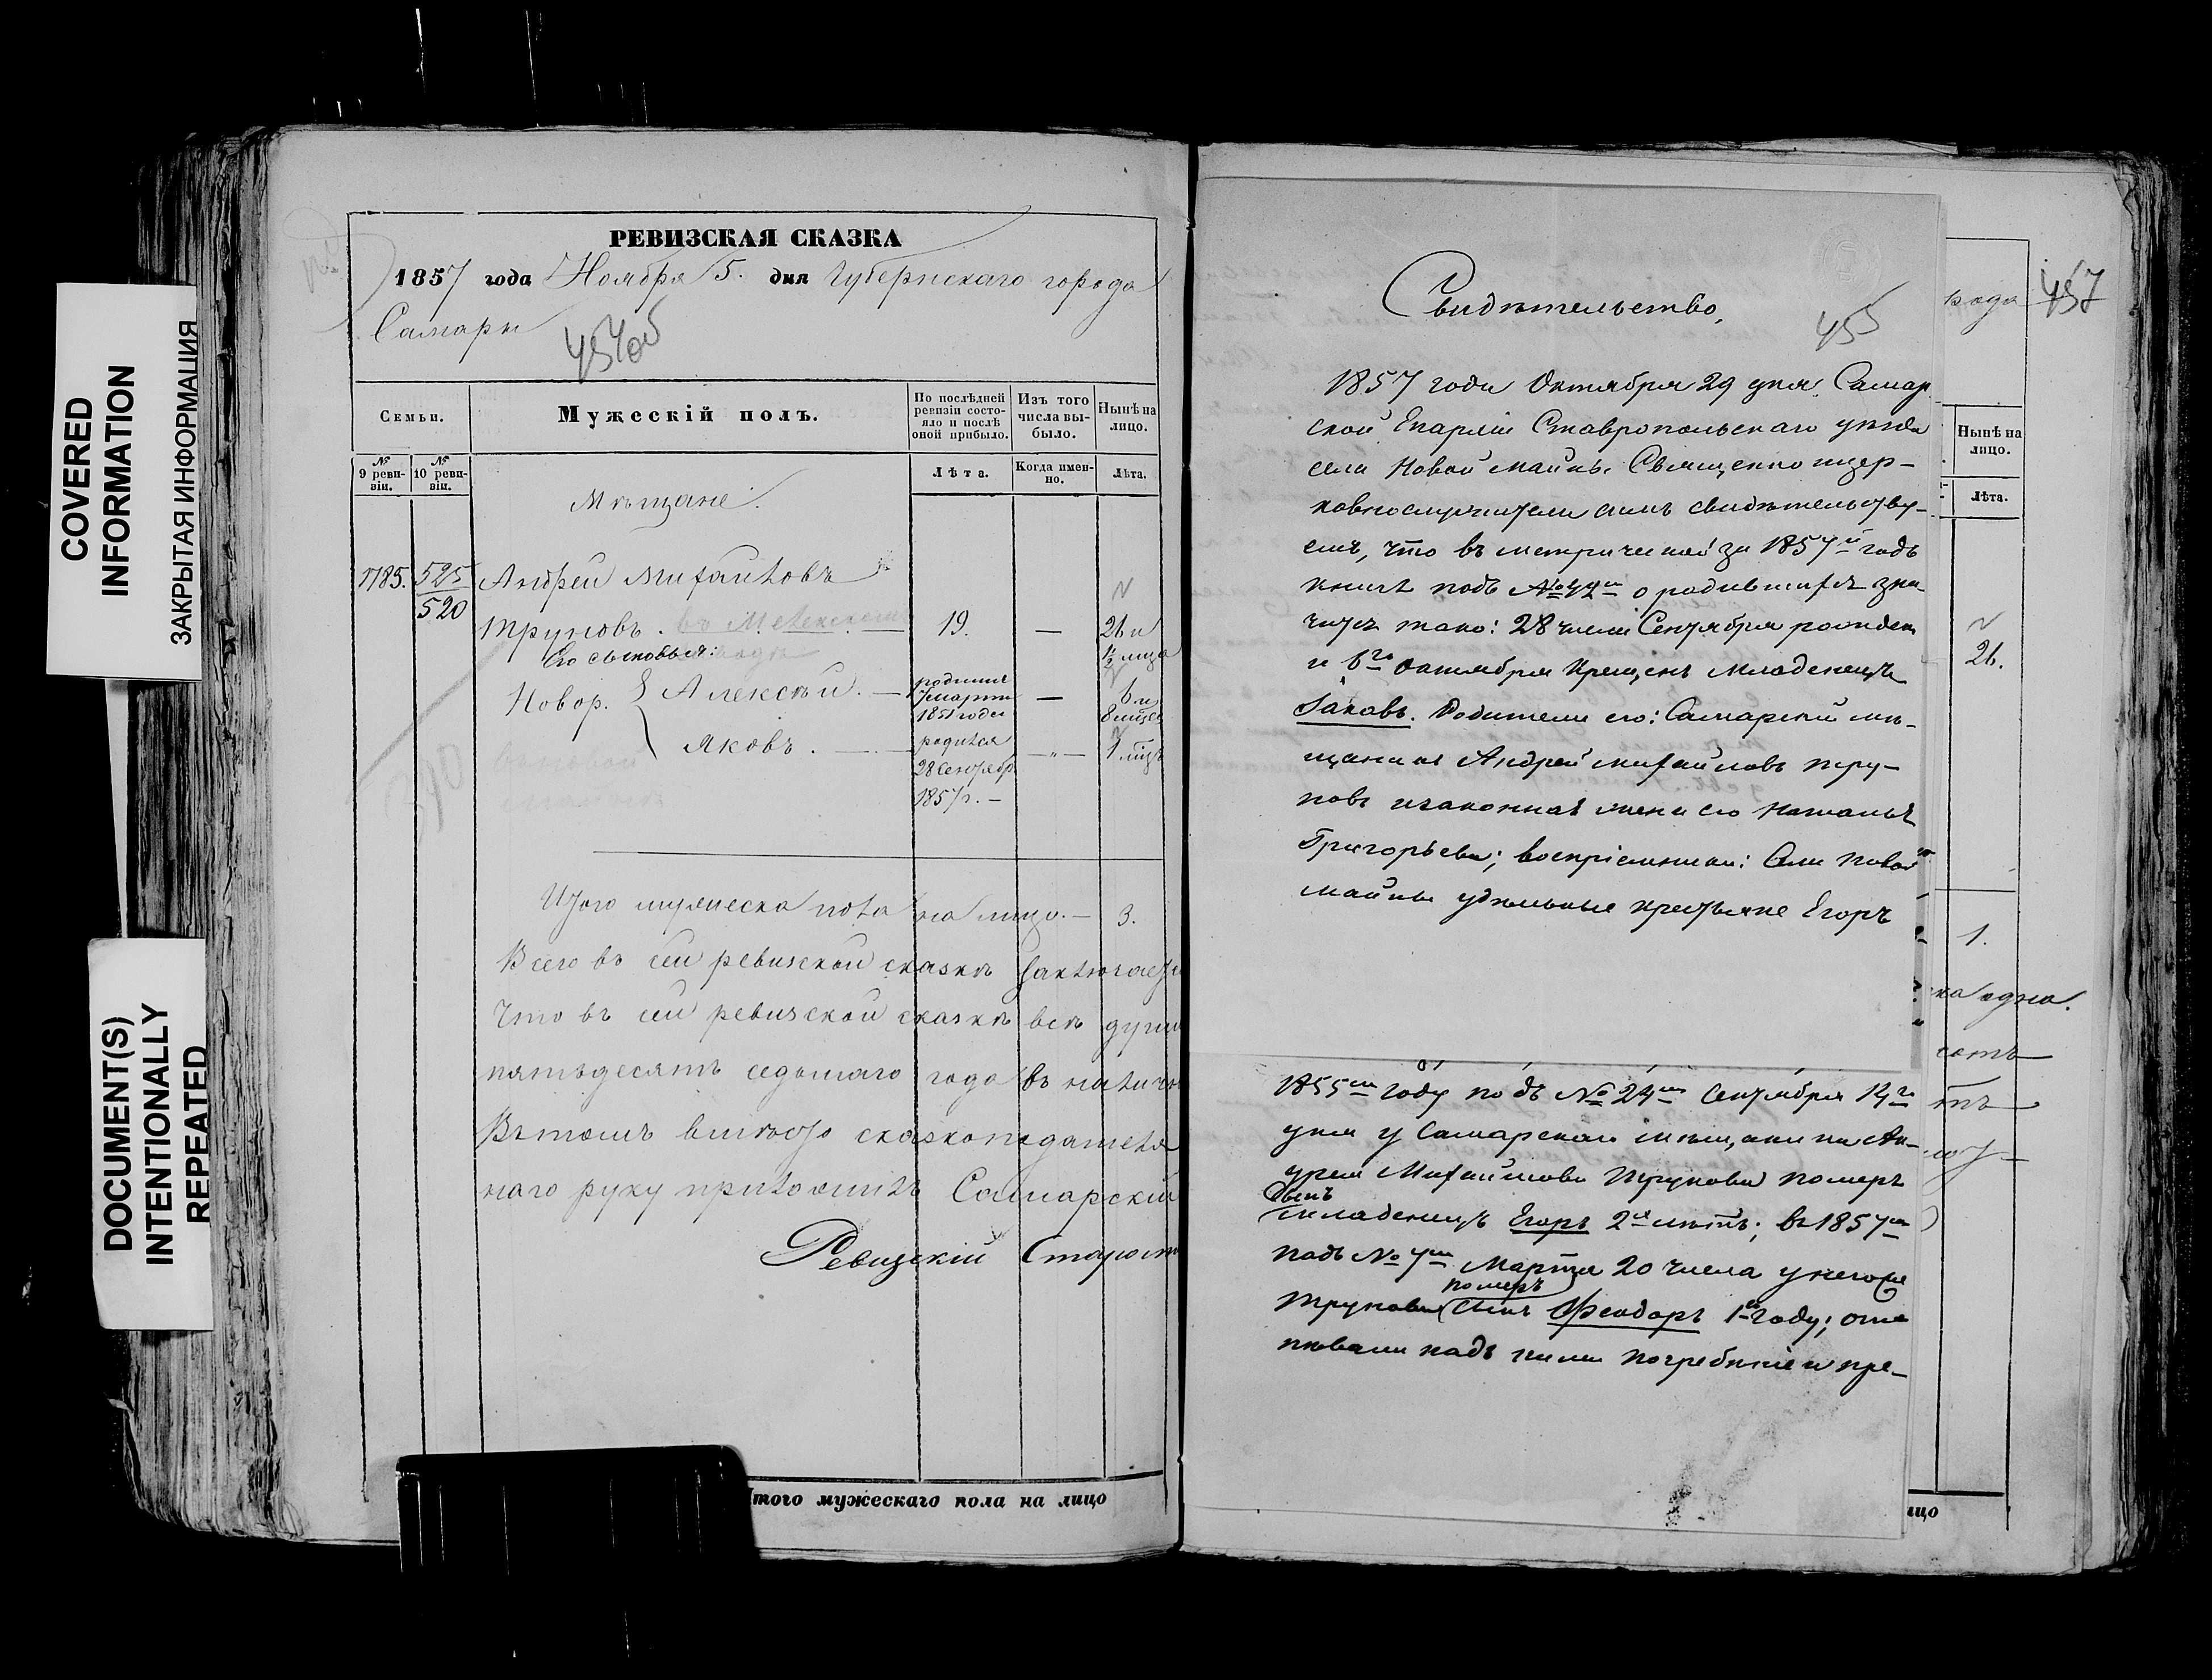 COVERED
INFORMATION
ЗАКРЫТАЯ ИНФОРМАЦИЯ
DOCUMENT(S)
INTENTIONALLY
REPEATED
РЕВИЗСКАЯ СКАЗКА
1857 года Ноября 5. дня Губернскаго города
Самары
454об
Семьи.
Мужескій полъ.
По послѣдней ревизіи состояло и послѣ оной прибыло.
Изъ того числа выбыло.
Нынѣ на лицо.
№ 9 ревизіи.
№ 10 ревизіи.
Лѣта.
Когда именно.
Лѣта.
Мѣщане.
1185. 525 Андрей Михайловъ
520
Труновъ. 19. — 26 и
Его сыновья: 1½ мца
Новор. Алексѣй. — родился 7 марта 1851 года — 6 и 8 мцев
Яковъ. — родился 28 Сентябр 1857 г. — 1 мцъ
Итого мужеска пола на лицо. — 3.
Всего въ сей ревизской сказкѣ заключается
Что въ сей ревизской сказкѣ всѣ души
пятьдесятъ седьмаго года въ наличн
Въ томъ вмѣсто сказкоподателя
наго руку приложилъ Самарскій
Ревизскій Старост
Итого мужескаго пола на лицо
Свидѣтельство,
455
1857 года Октября 29 дня. Самар
ской Епархіи Ставропольскаго уѣзда
села Новой Майны Священно и цер-
ковнослужители симъ свидѣтельству-
емъ, что въ метрической за 1857й годъ
книгѣ подъ № 42м о родившихся зна-
чится тако: 28 числа Сентября рожденъ
и 6го Октября крещенъ младенецъ
Іаковъ. Родители его: Самарскій мѣ-
щанинъ Андрей Михайловъ Тру-
новъ и законная жена его Наталья
Григорьева; воспріемники: Села Новой
Майны удѣльные крестьяне Егоръ
1855м году подъ № 24м Сентября 14го
дня у Самарскаго мѣщанина Ан-
дрея Михайлова Трунова померъ
сынъ
младенецъ Егоръ 2хъ лѣтъ; въ 1857м
подъ № 7м Марта 20 числа у него же
померъ
Трунова сынъ Феодоръ 1го году; отпѣ
пѣвали надъ ними погребеніе и пре-
рода
457
Нынѣ на лицо.
Лѣта.
26.
1.
одна.
ицо